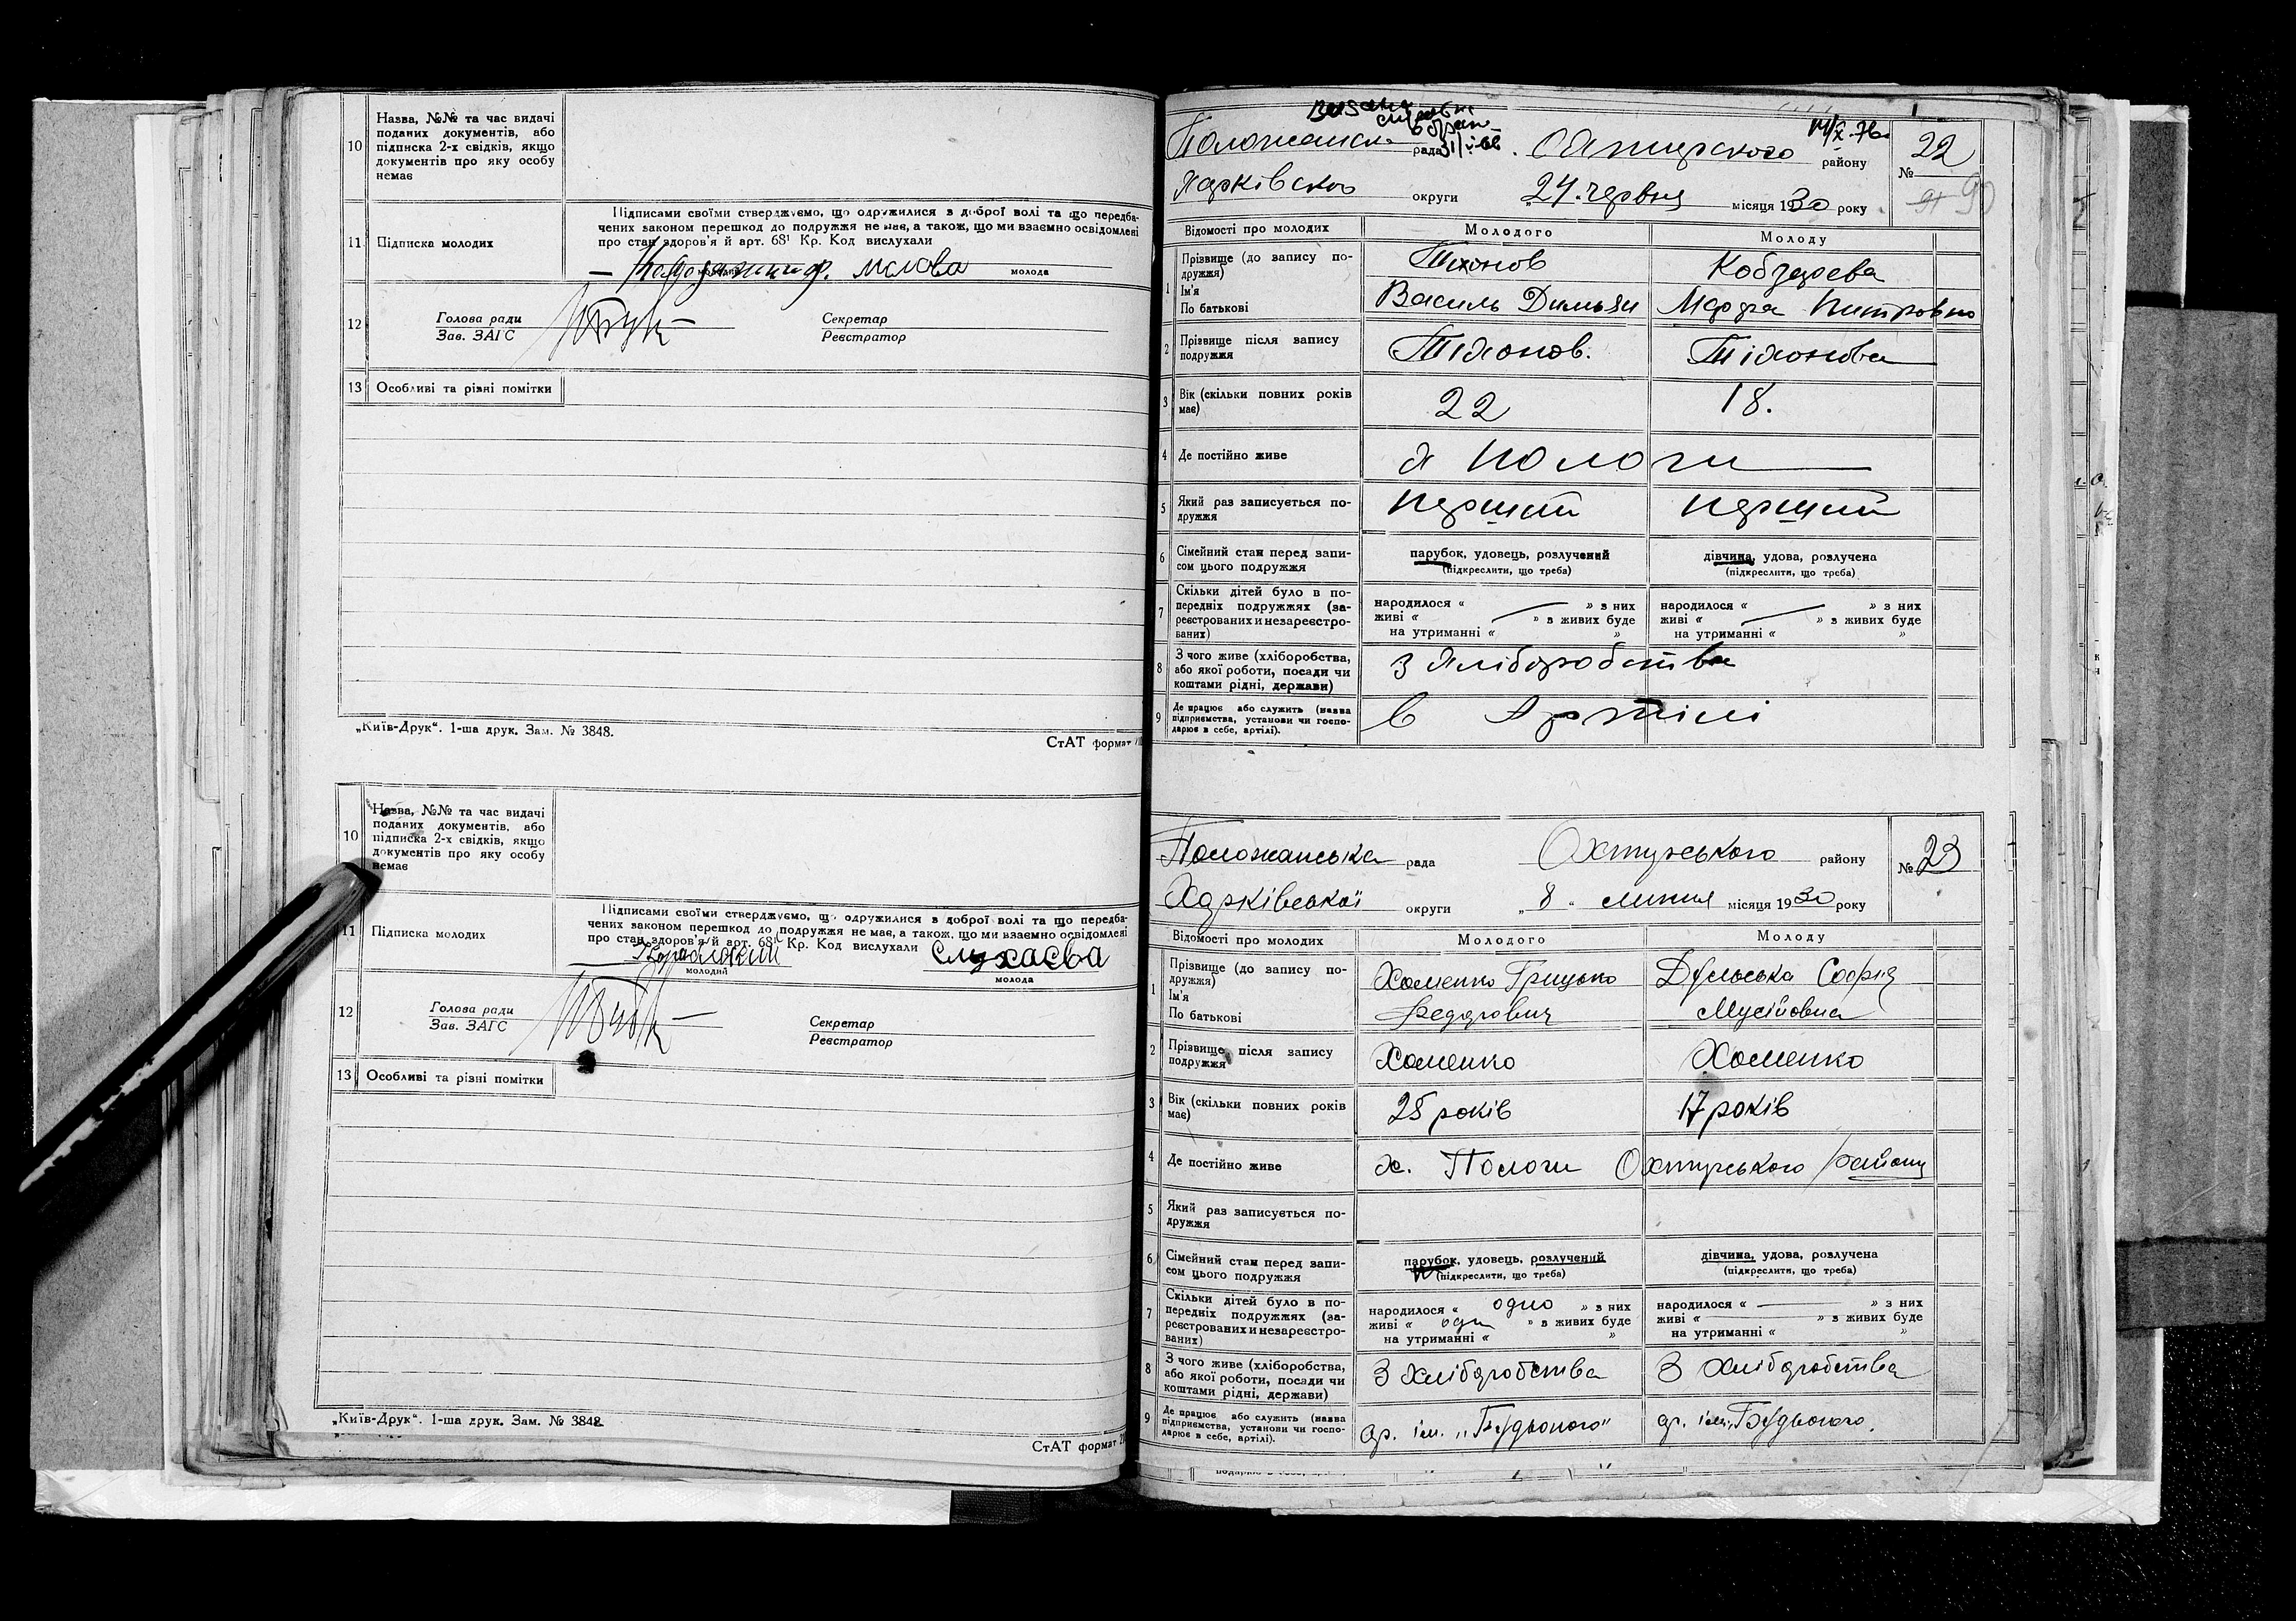 10 Назва, №№ та час видачі
поданих документів, або
підписка 2-х свідків, якщо
документів про яку особу
немає
11 Підписка молодих
Підписами своїми стверджуємо, що одружилися з доброї волі та що передба-
чених законом перешкод до подружжя не має, а також, що ми взаємно освідомлені
про стан здоров'я й арт. 68¹ Кр. Код вислухали
молодий молода
12 Голова ради Секретар
Зав. ЗАГС Реєстратор
13 Особливі та різні помітки
„Київ-Друк“. 1-ша друк. Зам. № 3848.
СтАТ формат
10 Назва, №№ та час видачі
поданих документів, або
підписка 2-х свідків, якщо
документів про яку особу
немає
11 Підписка молодих
Підписами своїми стверджуємо, що одружилися з доброї волі та що передба-
чених законом перешкод до подружжя не має, а також, що ми взаємно освідомлені
про стан здоров'я й арт. 68¹ Кр. Код вислухали
Слухаєва
молодий молода
12 Голова ради Секретар
Зав. ЗАГС Реєстратор
13 Особливі та різні помітки
„Київ-Друк“. 1-ша друк. Зам. № 3848.
СтАТ формат
рада району № 22
Харківсько округи 24 червня місяця 1930 року
Відомості про молодих Молодого Молоду
1 Прізвище (до запису по-
дружжя)
Ім'я
По батькові
Тихонов
Василь Димьян
Марфа Питровно
2 Прізвище після запису
подружжя
Тіхонов. Тіхонова
3 Вік (скільки повних років
має)
22 18.
4 Де постійно живе х Пологи
5 Який раз записується по-
дружжя
перший перший
6 Сімейний стан перед запи-
сом цього подружжя
парубок, удовець, розлучений дівчина, удова, розлучена
(підкреслити, що треба) (підкреслити, що треба)
7 Скільки дітей було в по-
передніх подружжях (за-
реєстрованих и незареєстро-
ваних)
народилося « » з них народилося « » з них
живі « » з живих буде живі « » з живих буде
на утриманні « » на утриманні « »
8 З чого живе (хліборобства,
або якої роботи, посади чи
коштами рідні, держави)
з хліборобства
9 Де працює або служить (назва
підприємства, установи чи госпо-
дарює в себе, артілі).
в Артілі
Положанська рада Охтирського району № 23
Харківської округи „8“ липня місяця 1930 року
Відомості про молодих Молодого Молоду
1 Прізвище (до запису по-
дружжя)
Ім'я
По батькові
Хоменко Грицько
Федорович
Дульська Софія
Мусійовна
2 Прізвище після запису
подружжя
Хоменко Хоменко
3 Вік (скільки повних років
має)
25 років 17 років
4 Де постійно живе х. Пологи Охтирського району
5 Який раз записується по-
дружжя
6 Сімейний стан перед запи-
сом цього подружжя
парубок, удовець, розлучений дівчина, удова, розлучена
(підкреслити, що треба) (підкреслити, що треба)
7 Скільки дітей було в по-
передніх подружжях (за-
реєстрованих и незареєстро-
ваних)
народилося « одно » з них народилося « » з них
живі « одн » з живих буде живі « » з живих буде
на утриманні « » на утриманні « »
8 З чого живе (хліборобства,
або якої роботи, посади чи
коштами рідні, держави)
З хліборобства З хліборобства
9 Де працює або служить (назва
підприємства, установи чи госпо-
дарює в себе, артілі).
ар. ім. „Будьоного“ ар. ім. „Будьоного